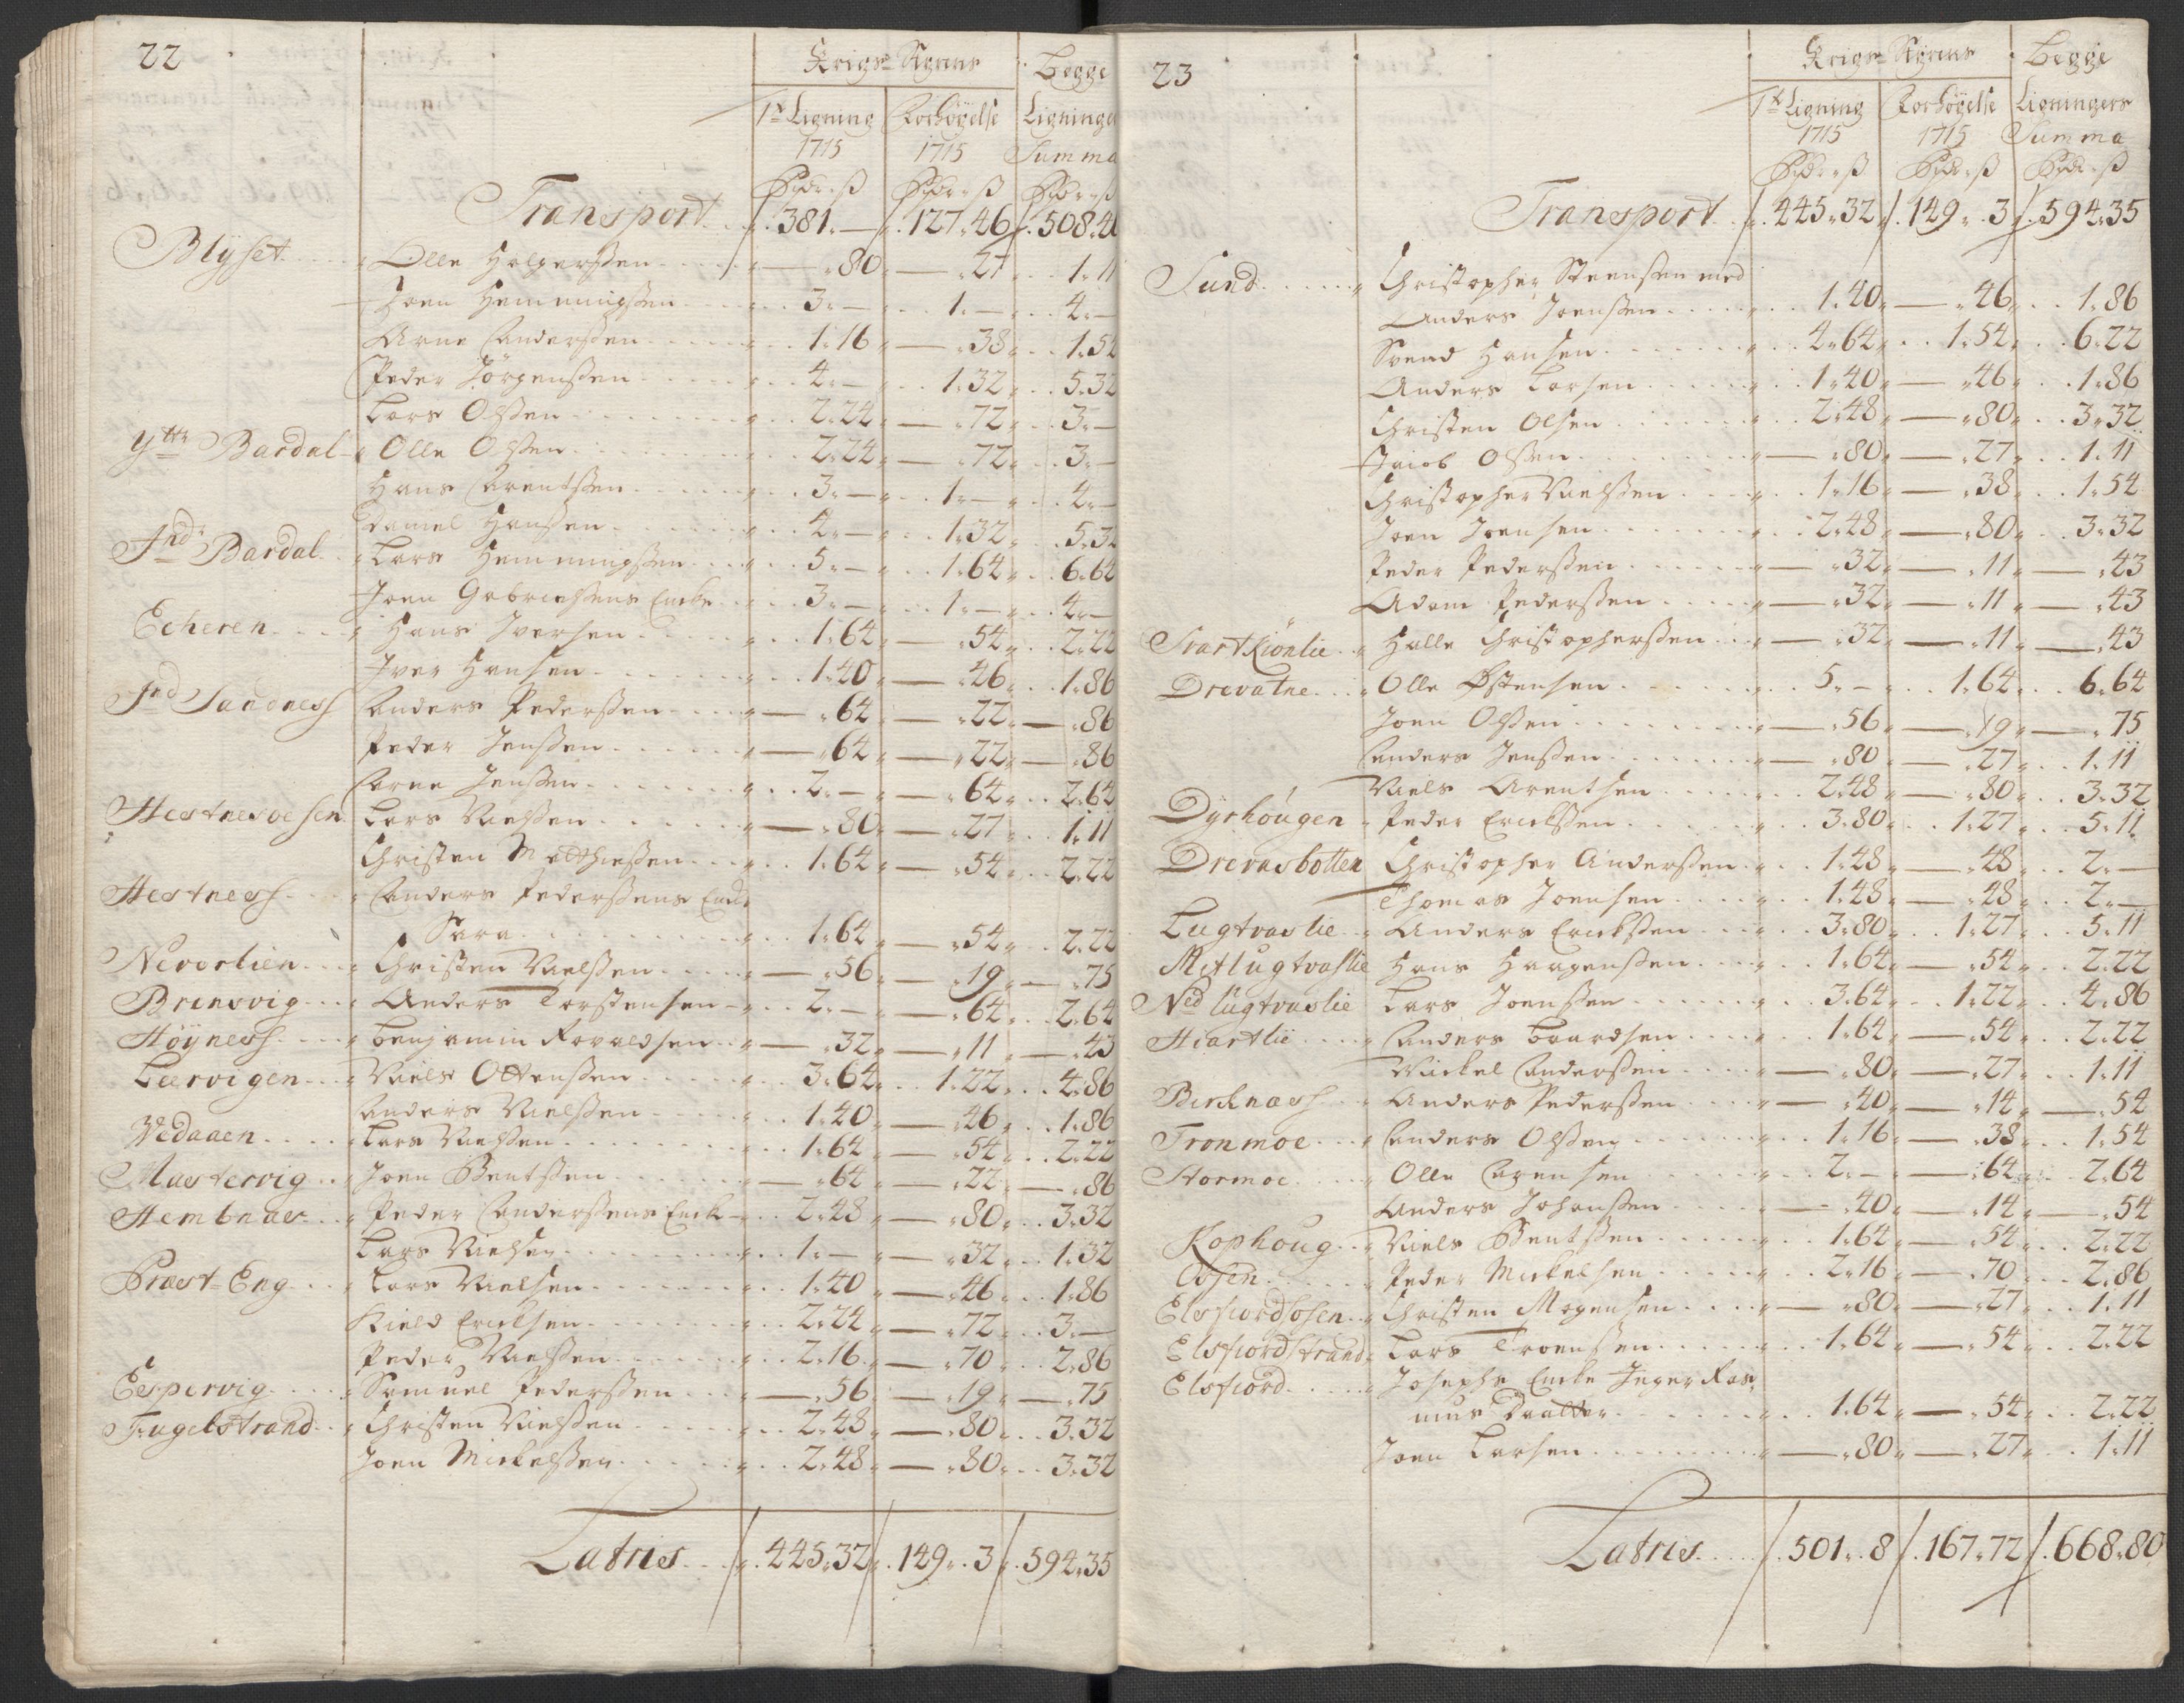 22
Krigs Styrens Begge
1te Ligning Forhöyelse Ligninger
1715 1715 Summa
Rixdr ß Rixdr ß Rixdr ß
Transport 381.— 127.46 508.4
Blyset Olle Holgerssen — 80 — 27 1.11
Joen Hemmingssen 3.— 1.— 4.—
Arne Anderssen 1.16 — 38 1.54
Peder Jörgenssen 4.— 1.32 5.32
Lars Olssen 2.24 — 72 3.—
Yttr Bardal Olle Olssen 2.24 — 72 3.—
Hans Arentssen 3.— 1.— 4.—
Daniel Hanssen 4.— 1.32 5.32
Indr Bardal Lars Hemmingssen 5.— 1.64 6.64
Joen Gabrielssens Encke 3.— 1.— 4.—
Echeren Hans Iversen 1.64 — 54 2.22
Iver Hansen 1.40 — 46 1.86
Ind Sandness Anders Pederssen — 64 — 22 — 86
Peder Jenssen — 64 — 22 — 86
Arne Jenssen 2.— — 64 2.64
Hestnesoesen Lars Nielssen — 80 — 27 1.11
Christen Matthiessen 1.64 — 54 2.22
Hestness Anders Pederssens Encke
Sara 1.64 — 54 2.22
Neverlien Christen Nielssen — 56 — 19 — 75
Brensvig Anders Torstensen 2.— — 64 2.64
Höyness Benjamin Rovaldsen — 32 — 11 — 43
Leervigen Niels Ottenssen 3.64 1.22 4.86
Anders Nielssen 1.40 — 46 1.86
Vedaaen Lars Nielssen 1.64 — 54 2.22
Mastervig Joen Bentssen — 64 — 22 — 86
Hembnæs Peder Anderssens Encke 2.48 — 80 3.32
Lars Nielsen 1.— — 32 1.32
Præst-Eng Lars Nielsen 1.40 — 46 1.86
Kield Ericksen 2.24 — 72 3.—
Peder Nielssen 2.16 — 70 2.86
Espervig Samuel Pederssen — 56 — 19 — 75
Fugelstrand Christen Nielssen 2.48 — 80 3.32
Joen Mickelssen 2.48 — 80 3.32
Latris 445.32 149.3 594.35
23
Krigs Styrens Begge
1te Ligning Forhöyelse Ligningers
1715 1715 Summa
Rixdr ß Rixdr ß Rixdr ß
Transport 445.32 149.3 594.35
Sund Christopher Steenssen med
Anders Joenssen 1.40 — 46 1.86
Svend Hansen 4.64 1.54 6.22
Anders Larsen 1.40 — 46 1.86
Christen Olsen 2.48 — 80 3.32
Jacob Olssen — 80 — 27 1.11
Christopher Nielssen 1.16 — 38 1.54
Joen Joensen 2.48 — 80 3.32
Peder Pederssen — 32 — 11 — 43
Adam Pederssen — 32 — 11 — 43
Svartkiönlie Halle Christopherssen — 32 — 11 — 43
Drevatne Olle Østensen 5.— 1.64 6.64
Joen Olssen — 56 — 19 — 75
Anders Jenssen — 80 — 27 1.11
Niels Arentsen 2.48 — 80 3.32
Dyrhougen Peder Erickssen 3.80 1.27 5.11
Drevasbotten Christopher Anderssen 1.48 — 48 2.—
Thomas Joensen 1.48 — 48 2.—
Lugtvaslie Anders Erickssen 3.80 1.27 5.11
Mitlugtvaslie Hans Haagenssen 1.64 — 54 2.22
Ned lugtvaslie Lars Joenssen 3.64 1.22 4.86
Hiartlie Anders Baardsen 1.64 — 54 2.22
Mickel Anderssen — 80 — 27 1.11
Bircknæss Anders Pederssen — 40 — 14 — 54
Tronmoe Anders Olssen 1.16 — 38 1.54
Stormoe Olle Arensen 2.— — 64 2.64
Anders Johanssen — 40 — 14 — 54
Kophoug Niels Bentssen 1.64 — 54 2.22
Osen Peder Mickelsen 2.16 — 70 2.86
Elsfiordsosen Christen Mogensen — 80 — 27 1.11
Elsfiordstrand Lars Troenssen 1.64 — 54 2.22
Elsfiord Josephs Encke Inger Ras
mus Daatter 1.64 — 54 2.22
Joen Larsen — 80 — 27 1.11
Latris 501.8 167.72 668.80